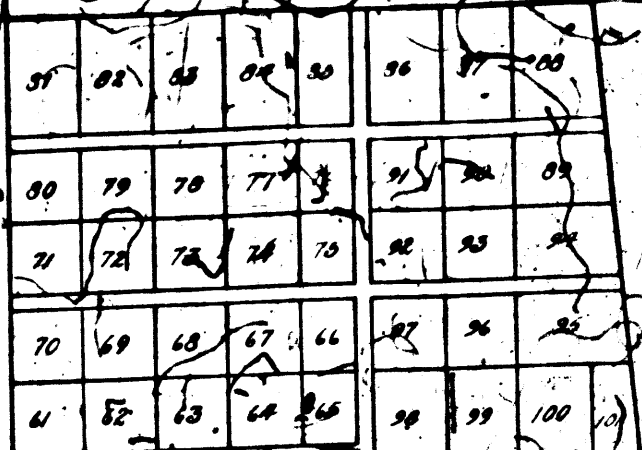 81 82 83 84 85 86 87 88
80 79 78 77 91 90 89
71 72 73 74 75 92 93 94
70 69 68 67 66 97 96 95
61 62 63 64 65 98 99 100 101